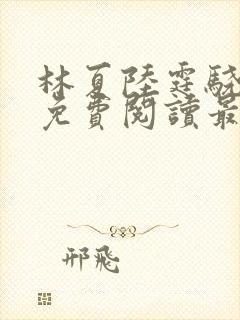 林夏陸霆驍
免費閱讀最
邢飛